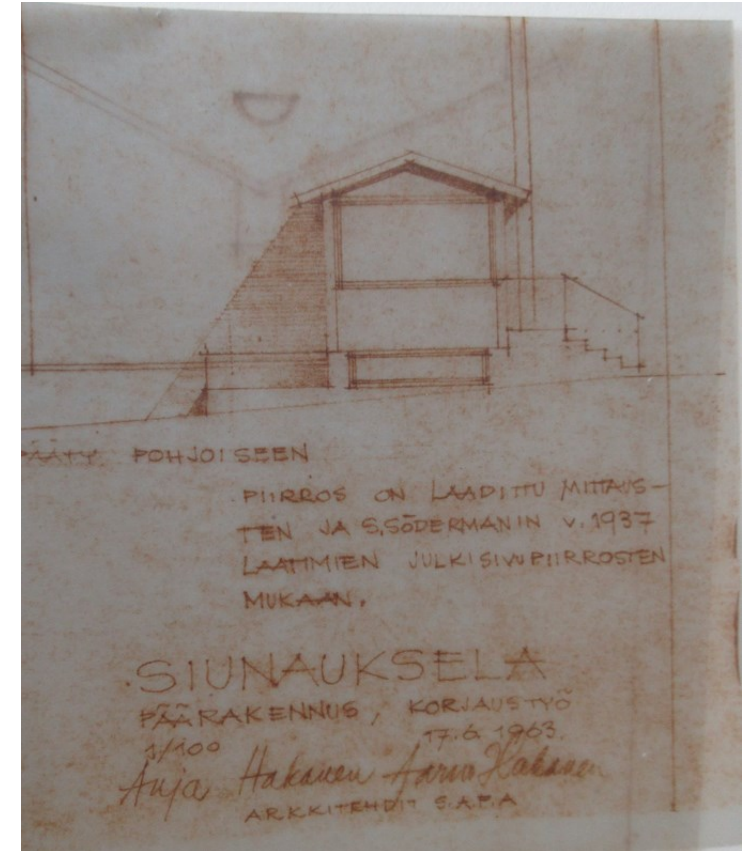 PÄÄTY POHJOISEEN
PIIRROS ON LAADITTU MITTAUS-
TEN JA S.SÖDERMANIN V. 1937
LAATIMIEN JULKISIVUPIIRROSTEN
MUKAAN.
SIUNAUKSELA
PÄÄRAKENNUS, KORJAUSTYÖ
1/100 17.6.1963.
Anja Hakanen Aarno Hakanen
ARKKITEHDIT S.A.F.A